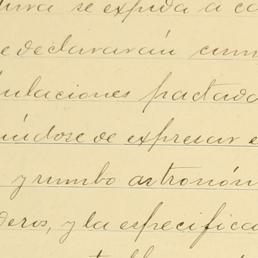 tura se expida a ca
e declararán cum
ulaciones pactada
iéndose de expresar e
y rumbo astronóm
deros, y la especifica